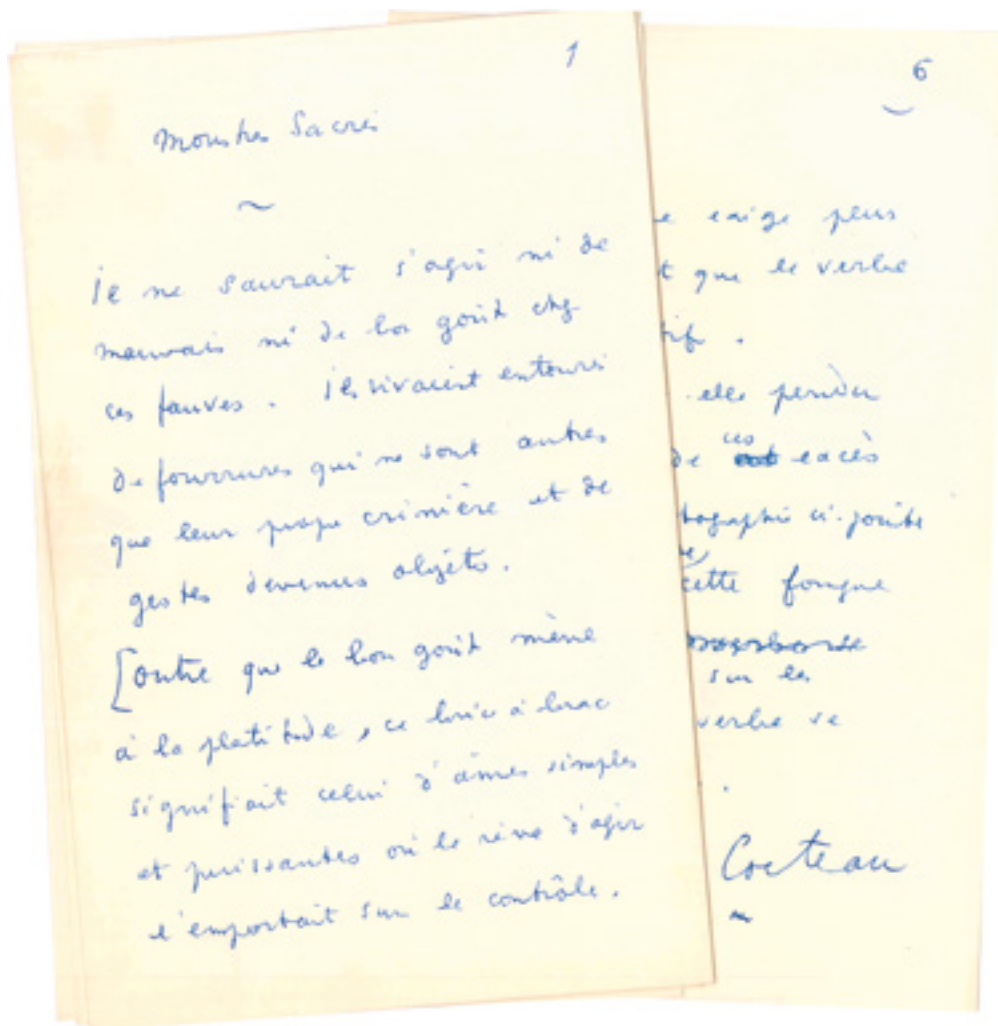 1
Monstres Sacrés
~
Il ne saurait s'agir ni de
mauvais ni de bon goût chez
ces fauves. Ils vivaient entourés
de fourrures qui ne sont autres
que leur propre crinière et de
gestes devenus objets.
[Outre que le bon goût mène
à la platitude, ce bric à brac
signifiait celui d'âmes simples
et puissantes où le rêve d'agir
l'emportait sur le contrôle.
6
e exige plus
t que le verbe
tif.
elle perdu
de ces excès
tographie ci-jointe
cette fougue
sur les
verbe se
.
Cocteau